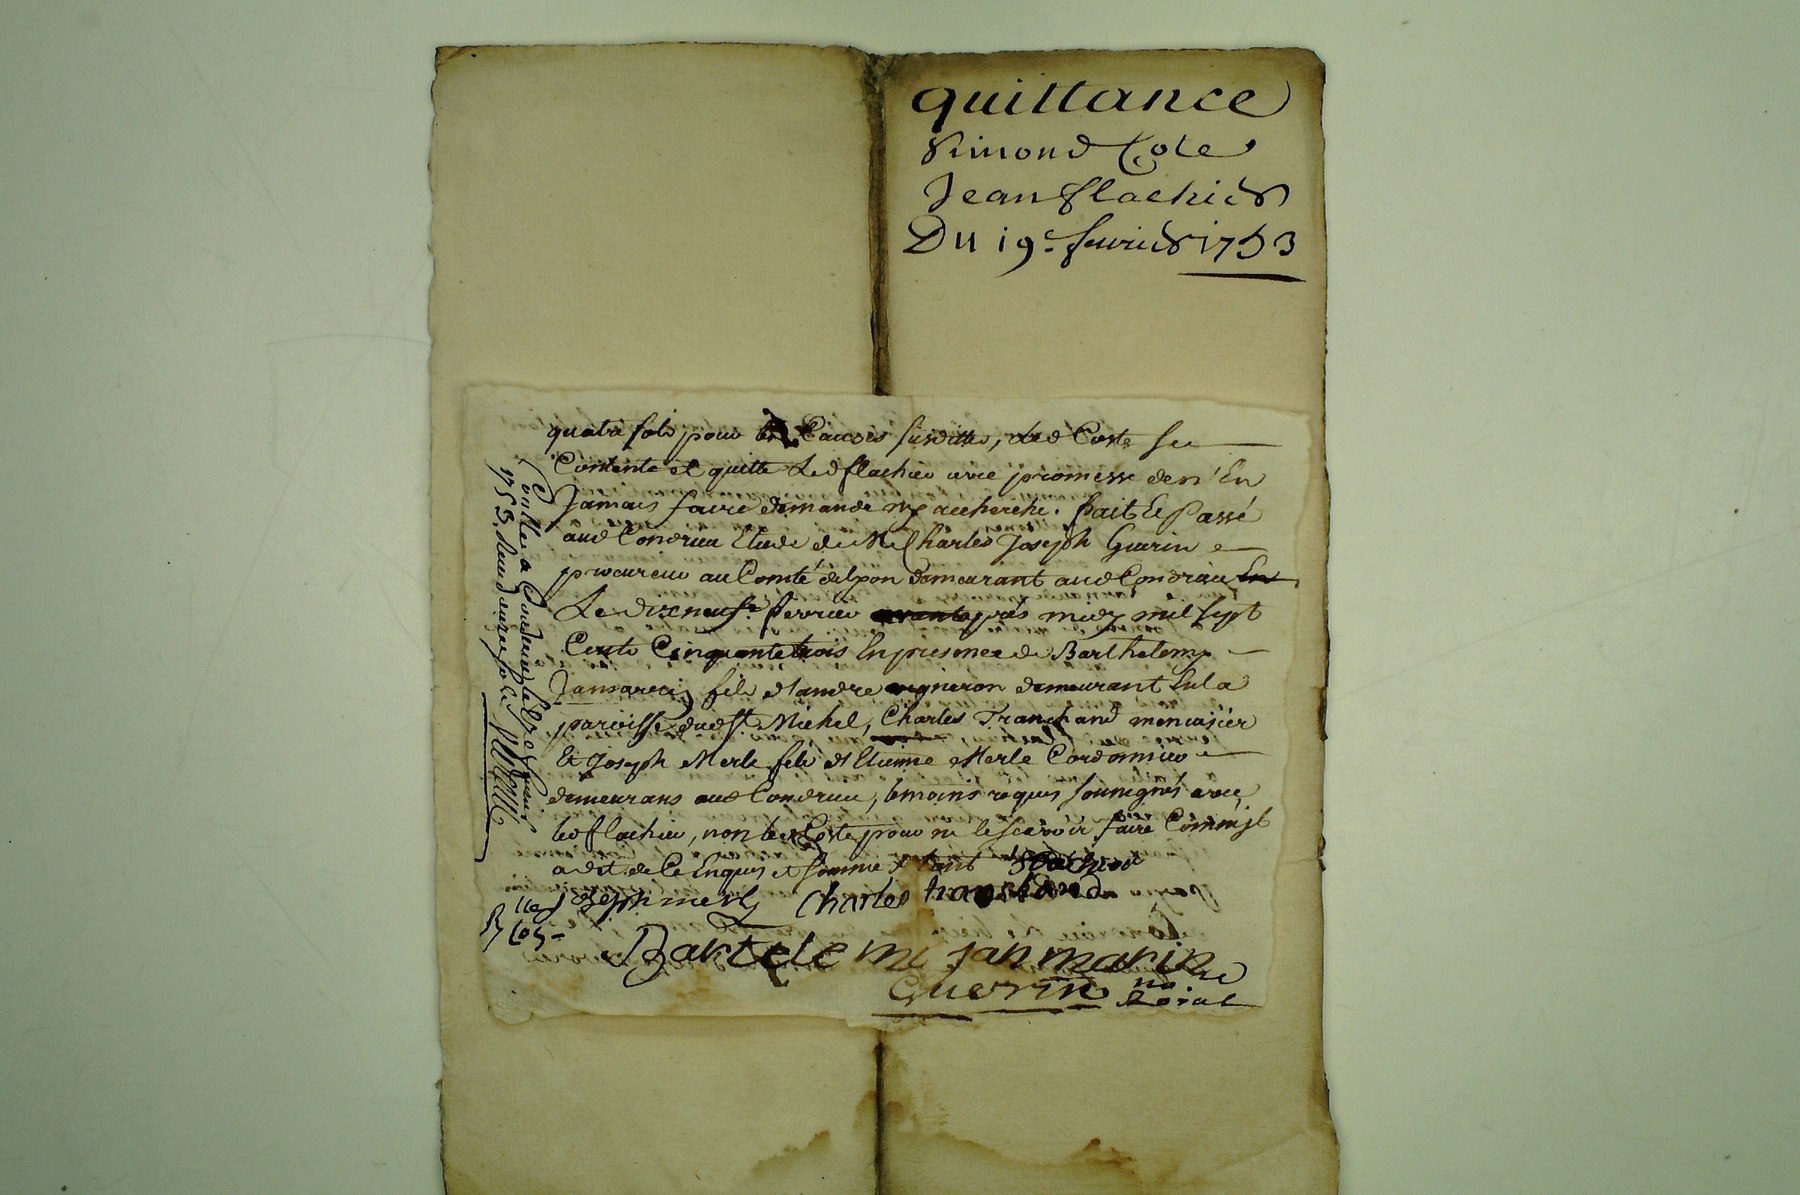 quittance
Simond Coste
Jean flachier
Du 19e. feuvrier 1753
quatre sols pour les Causes susdittes, led Coste sen
Contente et quitte Led flachier avec promesse de n'En
Jamais faire demande ny recherche. fait Et Passé
aud Condrieu Etude de Me Charles Joseph Guerin
procureur au Comté de Lyon demeurant aud Condrieu
Le dixneufe. fevrier apres midy mil sept
Cents Cinquante trois En presence de Barthelemy
Janmarein fils d'andre vigneron demeurant sur la
paroisse dud St Michel, Charles Tranchand menuisier
Et Joseph Merle fils d'Etienne Merle Cordonnier
demeurans aud Condrieu, temoins requis soussignés avec
led flachier, non led Coste pour ne le scavoir faire Comm'il
a dit de Ce Enquis et sommé flachier
joseph merle Charles tranchand
Bartelemi jan marin
Guerin no Roial
Conllé a Condrieu le
1753. Reçu douze sols